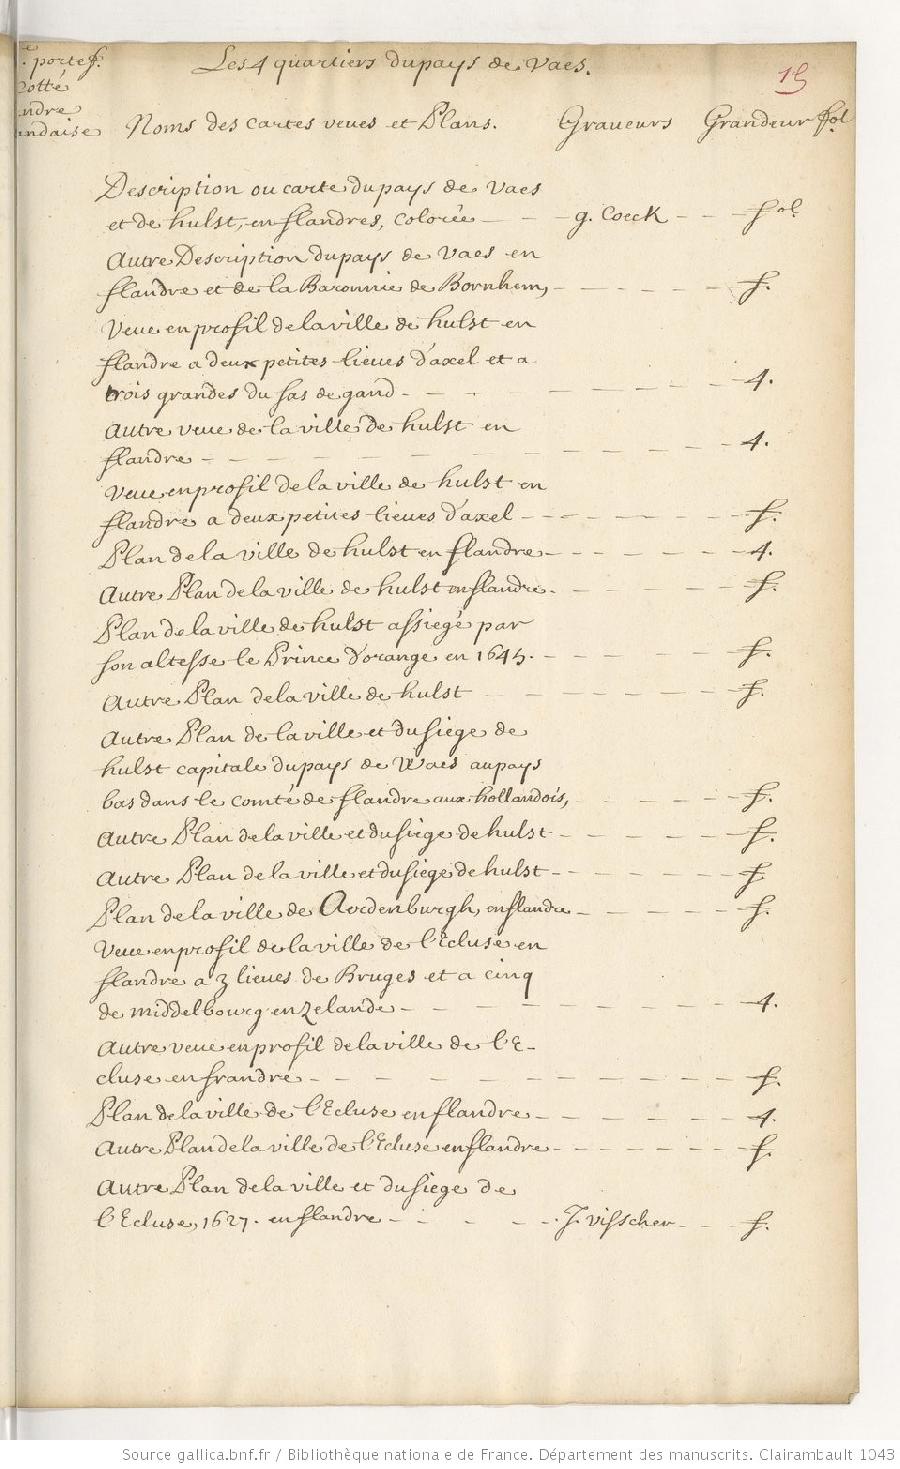 Les 4 quartiers du pays de Vaes.
15
e. portef.
otté
ndre
andaise
Noms des cartes veues et Plans. Graueurs Grandeur fol
Description ou carte du pays de Vaes
et de hulst, en flandres, colorée - - - g. Coeck - - - fol.
Autre Description du pays de Vaes en
flandre et de la Baronnie de Bornhem, - - - - - - f.
Veue en profil de la ville de hulst en
flandre a deux petites lieues d'axel et a
trois grandes du sas de gand - - - - - - - 4.
Autre veue de la ville de hulst en
flandre - - - - - - - - - 4.
Veue en profil de la ville de hulst en
flandre a deux petites lieues d'axel - - - - - - f.
Plan de la ville de hulst en flandre - - - - - - 4.
Autre Plan de la ville de hulst en flandre. - - - - - f.
Plan de la ville de hulst assiegé par
son altesse le Prince d'orange en 1645. - - - - - f.
Autre Plan de la ville de hulst - - - - - - f.
Autre Plan de la ville et du siege de
hulst capitale du pays de Waes au pays
bas dans le comté de flandre aux hollandois, - - - - - f.
Autre Plan de la ville et du siege de hulst - - - - - - f.
Autre Plan de la ville et du siege de hulst - - - - - - f
Plan de la ville de Aordenburgh, en flandre - - - - - f.
Veue en profil de la ville de l'ecluse en
flandre a 3 lieues de Bruges et a cinq
de middelbourg en zelande - - - - - - - - 4.
Autre veue en profil de la ville de l'E-
cluse en frandre - - - - - - - - - - f.
Plan de la ville de l'Ecluse en flandre - - - - - - 4.
Autre Plan de la ville de l'Ecluse en flandre - - - - - - f.
Autre Plan de la ville et du siege de
l'Ecluse, 1627. en flandre - - - - - - J. visscher - - f.
Source gallica.bnf.fr / Bibliothèque nationale de France. Département des manuscrits. Clairambault 1043